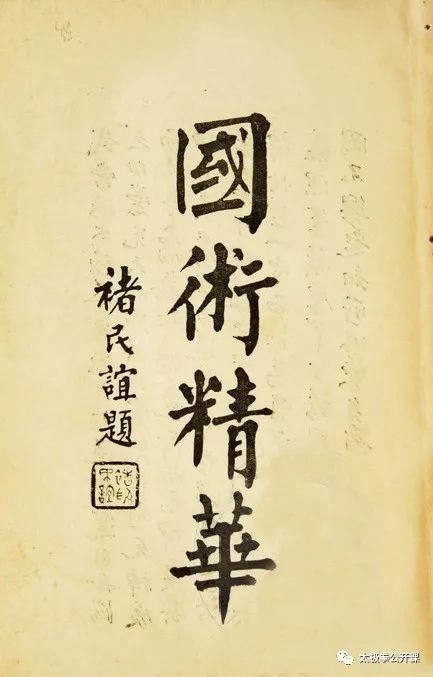 國術精華
褚民誼題
太极拳公开课